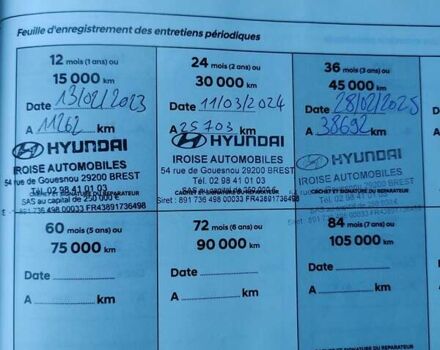 Feuille d'enregistrement des entretiens périodiques
12 mois (1 ans) ou
15 000 km
Date 13/02/2023
A 11262 km
HYUNDAI
IROISE AUTOMOBILES
54 rue de Gouesnou 29200 BREST
Tél. 02 98 41 01 03
CACHET ET SIGNATURE DU RÉPARATEUR
SAS au capital de 250 000 €
891 736 498 00033 FR43891736498
24 mois (2 ans) ou
30 000 km
Date 11/03/2024
A 25703 km
HYUNDAI
IROISE AUTOMOBILES
54 rue de Gouesnou 29200 BREST
Tél. 02 98 41 01 03
CACHET ET SIGNATURE DU RÉPARATEUR
SAS au capital de 250 000 €
Siret : 891 736 498 00033 FR43891736498
36 mois (3 ans) ou
45 000 km
Date 28/02/2025
A 38692 km
HYUNDAI
IROISE AUTOMOBILES
54 rue de Gouesnou 29200 BREST
Tél. 02 98 41 01 03
CACHET ET SIGNATURE DU RÉPARATEUR
60 mois (5 ans) ou
75 000 km
Date
A km
72 mois (6 ans) ou
90 000 km
Date
A km
84 mois (7 ans) ou
105 000 km
Date
A km